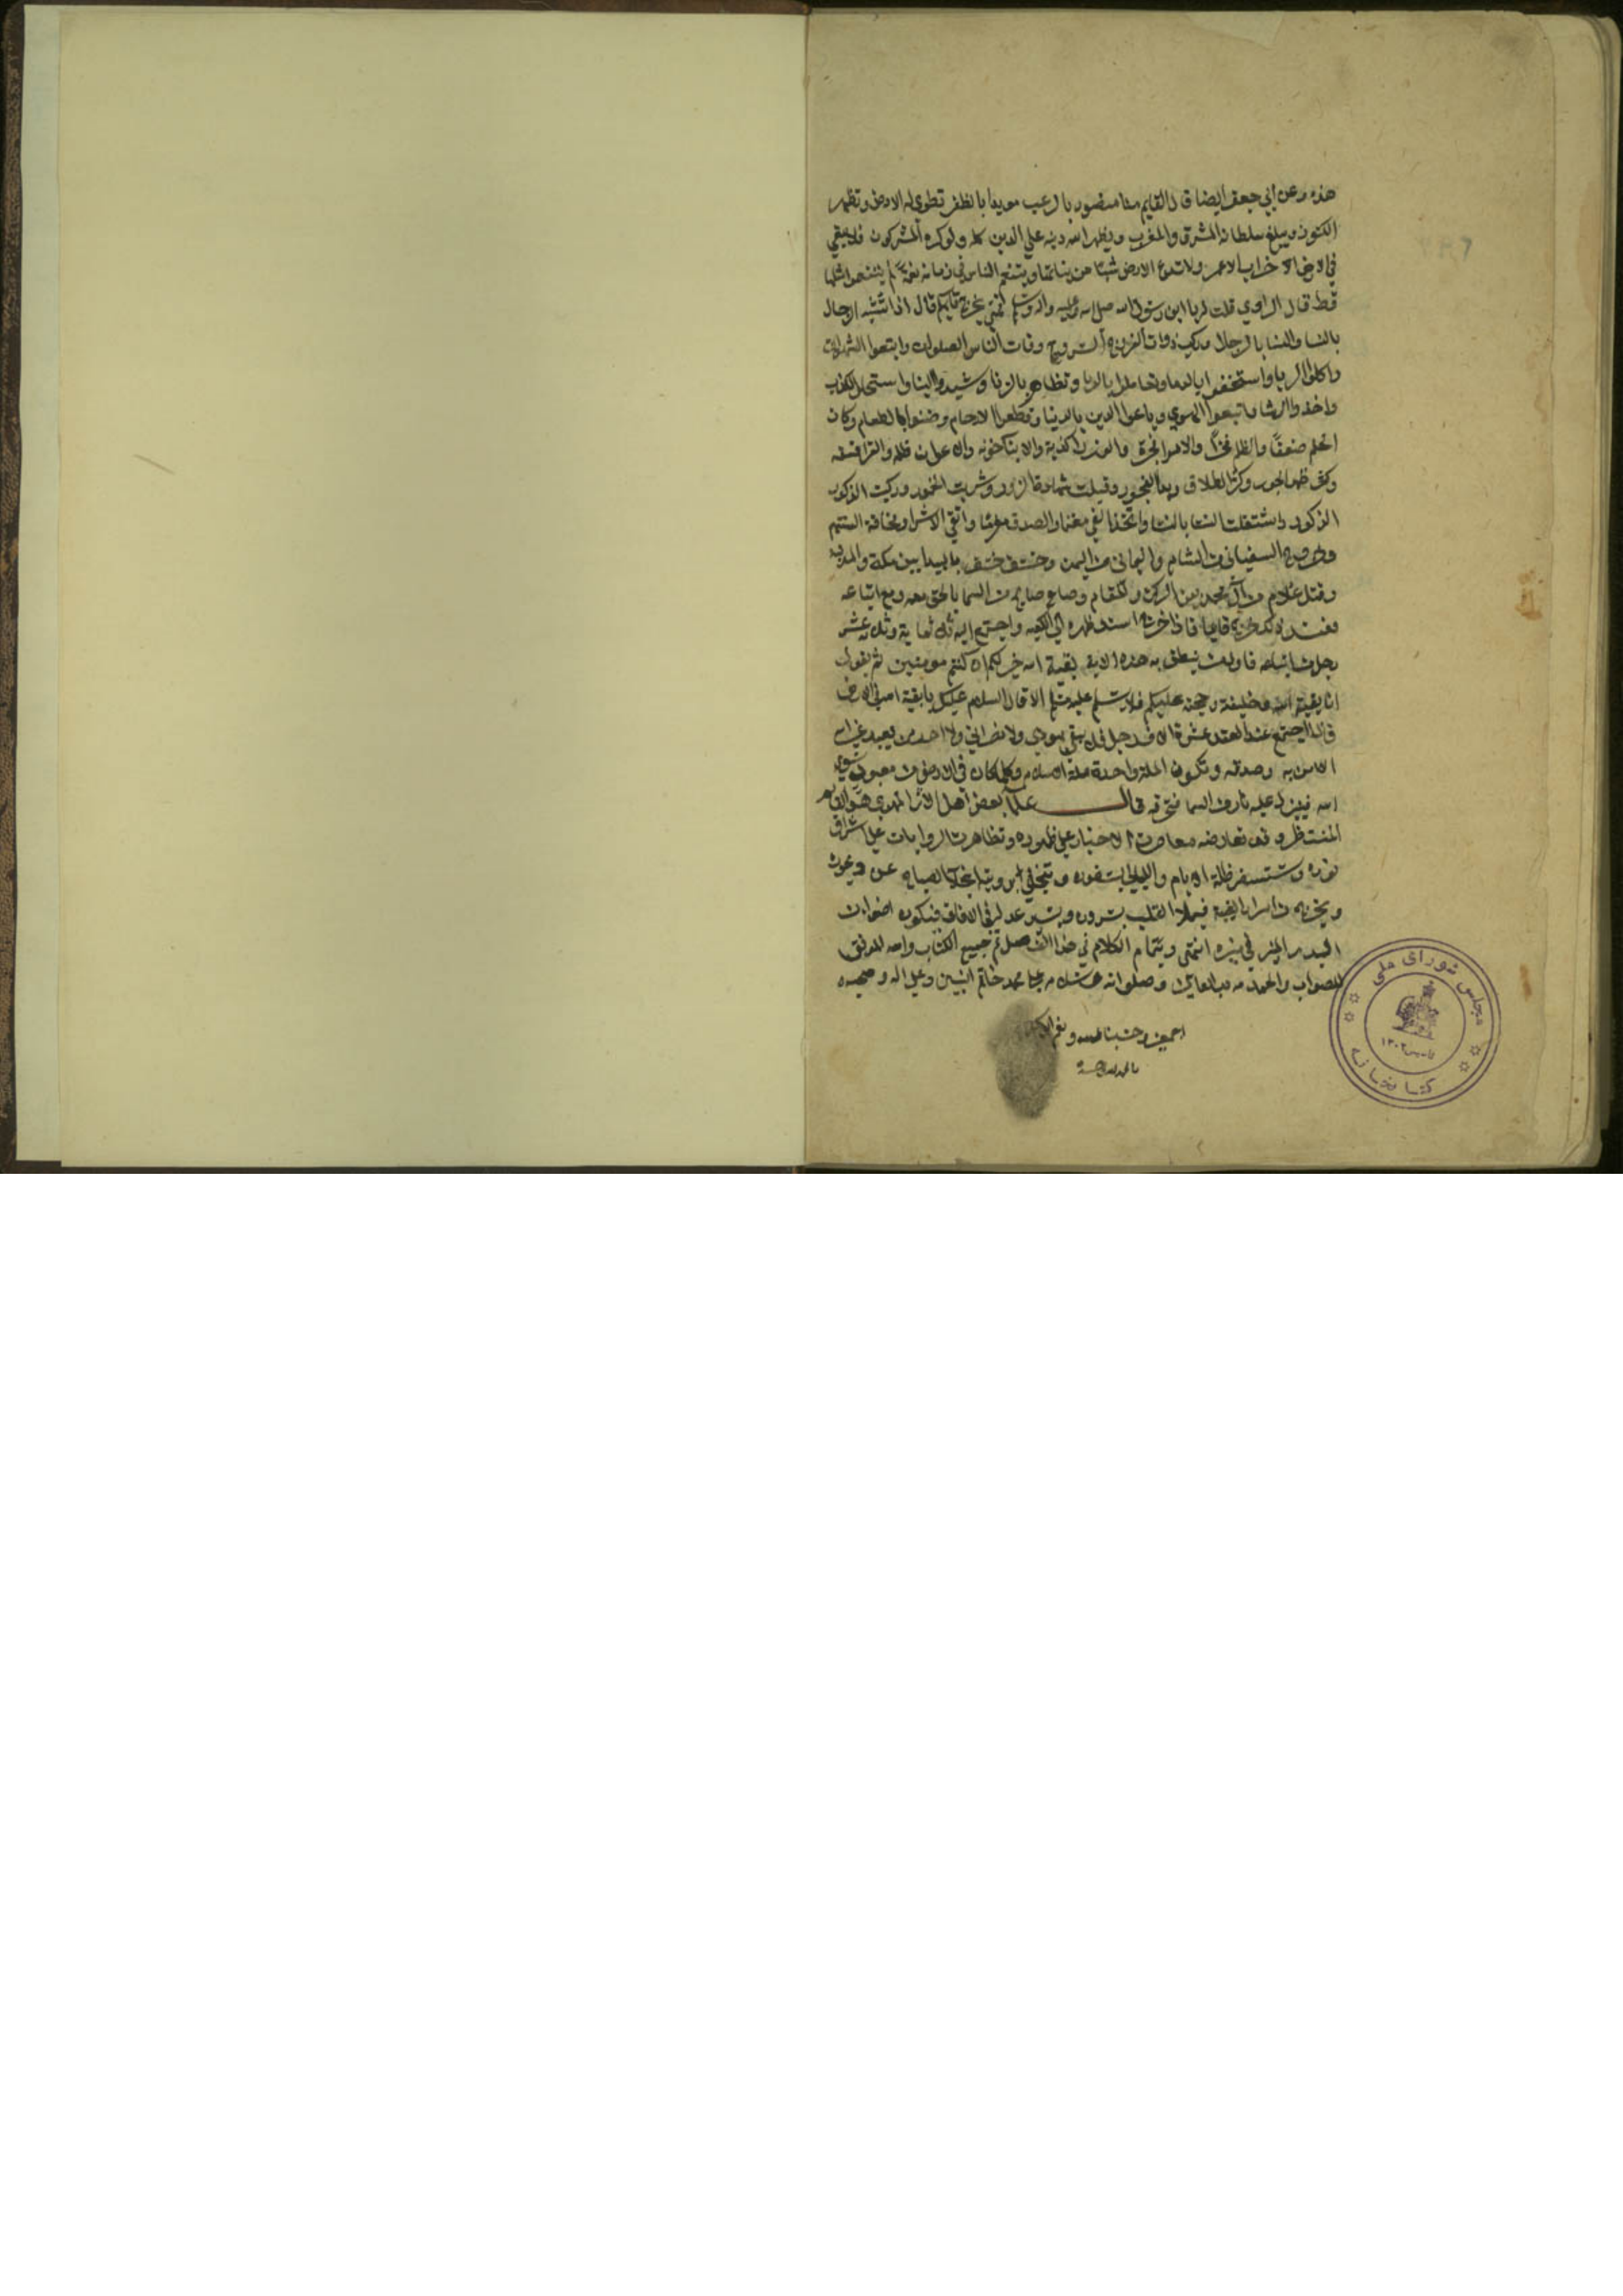 هذه وعن ابي جعفر ايضا قال القايم منا منصور بالرعب مويد بالظفر تطوى له الارض وتظهر
الكنوز ويبلغ سلطانه المشرق والمغرب ويظهر الله دينه علي الدين كله ولو كره المشركون فلا يبقي
في الارض خراب الا عمر ولا تدع الارض شيئا من نباتها ويتنعم الناس في زمانه نعمة لم يتنعموا مثلها
قط قال الراوي قلت له يا ابن رسول الله صلى الله عليه واله وسلم فمتى يخرج قايمكم قال اذا تشبه الرجال
بالنسا والنسا بالرجال وركبت ذوات الفروج السروج وفات الناس الصلوات واتبعوا الشهوات
واكلوا الربا واستخفوا بالدما وتعاملوا بالربا وتظاهروا بالزنا وشيدوا البنا واستحلوا الكذب
واخذوا الرشا واتبعوا الهوي وباعوا الدين بالدنيا وقطعوا الارحام وضنوا بالطعام وكان
الحلم ضعفا والظلم فخرا والامرا فجرة والوزرا كذبة والامنا خونه والاعوان ظلمه والقرا فسقه
وظهر الجور وكثر الطلاق وبدا الفجور وقبلت شهادة الزور وشربت الخمور وركبت الذكور
الذكور واشتغلت النسا بالنسا واتخذ الفي مغنما والصدقة مغرما واتقي الاشرار مخافة السنتهم
وخروج السفياني من الشام واليماني من اليمن وخسف خسف بالبيدا بين مكة والمدينه
وقتل غلام من آل محمد بين الركن والمقام وصاح صايح من السما بالحق معه ومع اتباعه
فعند ذلك خروج قايمنا فاذا خرج اسند ظهره الي الكعبه واجتمع اليه ثلاثماية وثلاثه عشر
رجلا من اتباعه فاول ما ينطق به هذه الاية بقية الله خير لكم ان كنتم مومنين ثم يقول
انا بقية الله وخليفته وحجته عليكم فلا يسلم عليه مسلم الا قال السلام عليك يا بقية الله في الارض
فاذا اجتمع عنده العقد عشرة الاف رجل فلا يبقى يهودي ولا نصراني ولا احد من يعبد غير الله
الا امن به وصدقه وتكون الملة واحدة ملة الاسلام وكلما كان في الارض من معبود سوى
الله فينزل عليه نار من السما فتحرقه قال علما بعض اهل الاثر المهدي هو القايم
المنتظر وقد تعاضدت الاخبار علي ظهوره وتظاهرت الروايات علي اشراق
نوره وستسفر ظلمة الايام والليالي بسفوره وتنجلي برويته انجلا الصباح عن ديجوره
ويخرج من اسرار الغيبة فيملا القلب بسروره ويسير عدله في الافاق فيكون اضوا من
البدر المنير في مسيره انتهى وبتمام الكلام في هذا الفصل تم جميع الكتاب والله الموفق
للصواب والحمد لله رب العالمين وصلواته علي محمد خاتم النبيين وعلي اله وصحبه
اجمعين وحسبنا الله ونعم الوكيل
مجلس شورای ملی
کتابخانه